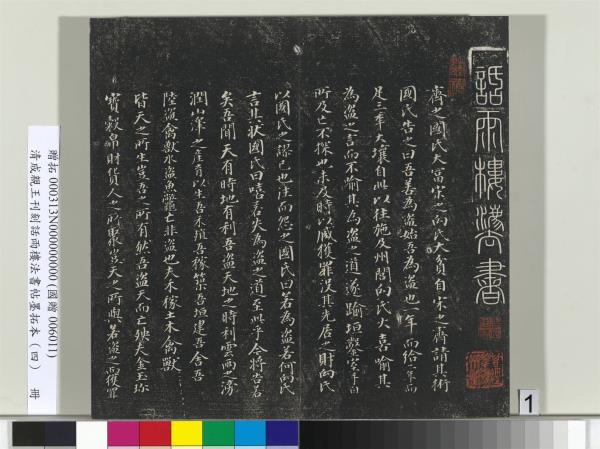 話雨樓灋書
齊之國氏大富宋之向氏大貧自宋之齊請其術
國氏告之曰吾善為盜始吾為盜也一年而給二年而
足三年大壤自此以往施及州閭向氏大喜喻其
為盜之言而不喻其為盜之道遂踰垣鑿室手目
所及亡不探也未及時以贓獲罪沒其先居之財向氏
以國氏之謬己也往而怨之國氏曰若為盜若何向氏
言其狀國氏曰嘻若失為盜之道至此乎今將告若
矣吾聞天有時地有利吾盜天地之時利雲雨之滂
潤山澤之產育以生吾禾殖吾稼築吾垣建吾舍吾
陸盜禽獸水盜魚鱉亡非盜也夫禾稼土木禽獸
皆天之所生豈吾之所有然吾盜天而亡殃夫金玉珍
寶穀帛財貨人之所聚豈天之所與若盜之而獲罪
贈拓 000313N000000000 (國贈 006011)
清成親王刊刻話雨樓法書帖墨拓本（四） 冊
1